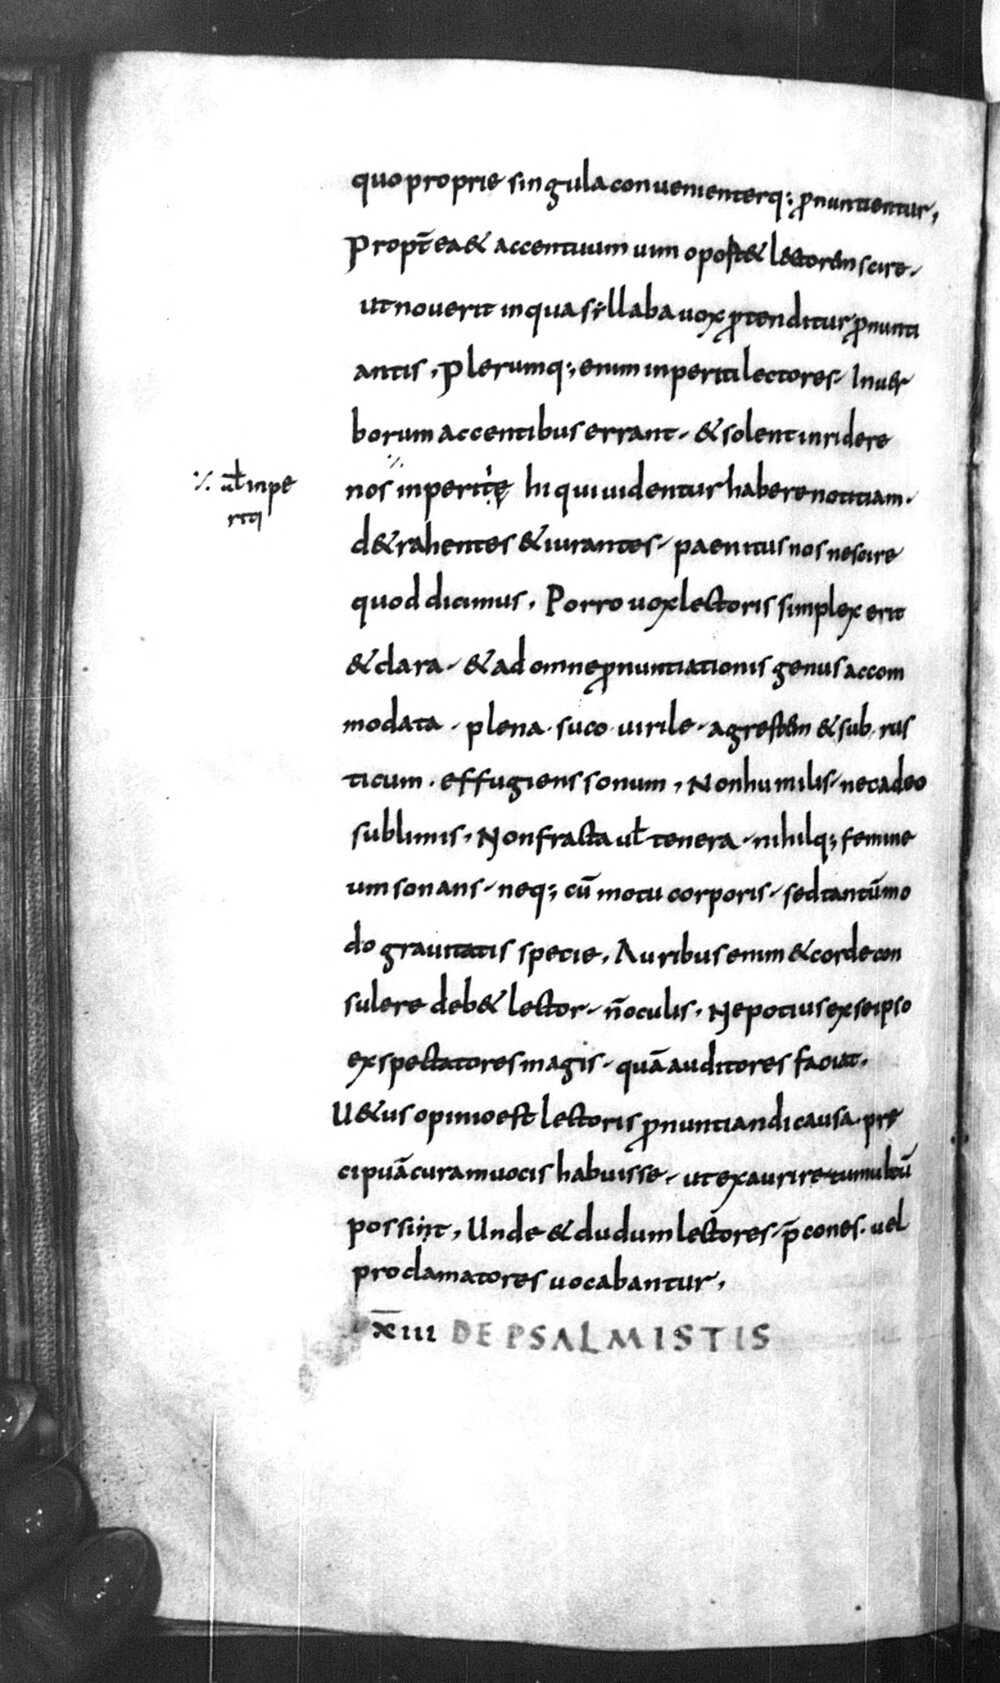 quo proprie singula conuenienterq; ꝓnuntientur,
Propt̄ ea & accentuum uim oport& lectorem scire.
ut nouerit in qua sẏllaba uox ꝓtenditur ꝓnunti
antis, Plerumq; enim inperiti lectores. In uer
borum accentibus errant. & solent inridere
nos inperitię hi qui uidentur habere notitiam.
⁒ ul̄ inpe
riti
d&rahentes & iurantes. paenitus nos nescire
quod dicimus, Porro uox lectoris simplex erit
& clara. & ad omne ꝓnuntiationis genus accom
modata. plena. suco. uirile. agrestem & sub rus
ticum. effugiens sonum, Non humilis. nec adeo
sublimis, Non fracta ul̄ tenera. nihilq; femine
um sonans. neq; cū motu corporis. sed tantūmo
do grauitatis specie, Auribus enim & corde con
sulere deb& lector. n̄ oculis, Ne potius ex se ipso
exspectatores magis. quā auditores faciat.
U&us opinio est lectoris ꝓnuntiandi causa. pre
cipuā curam uocis habuisse. ut exaurire tumultū
possint, Unde & dudum lectores. p̄cones. uel
proclamatores uocabantur,
x̄iii DE PSALMISTIS